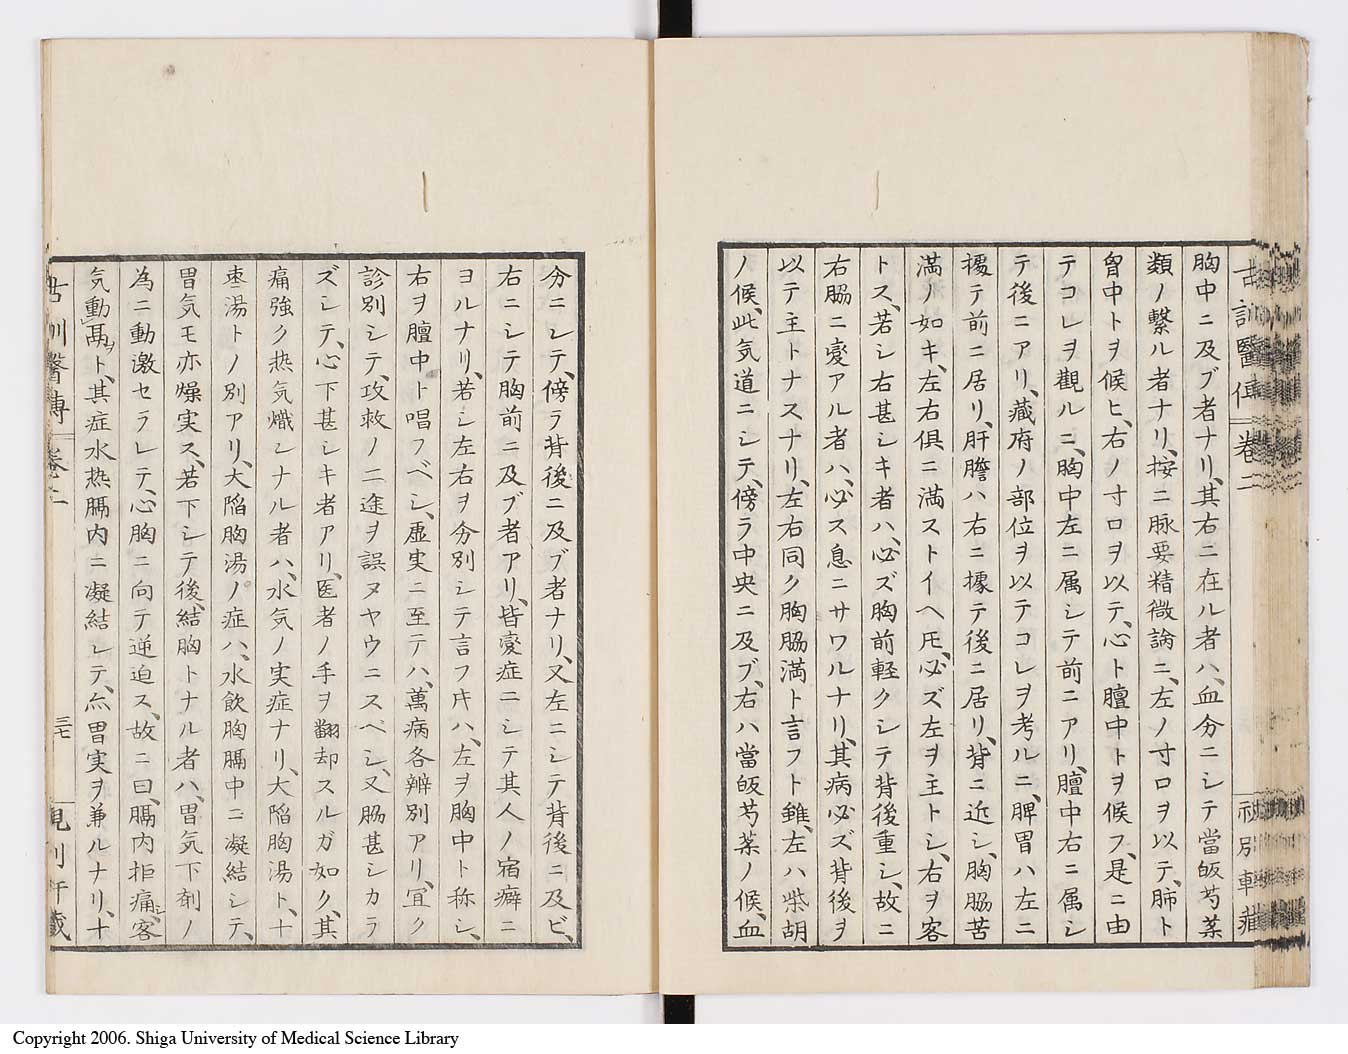 胸中ニ及ブ者ナリ、其右ニ在ル者ハ、血分ニシテ當皈芍薬
類ノ繋ル者ナリ、按ニ脉要精微論ニ、左ノ寸口ヲ以テ、肺ト
胷中トヲ候ヒ、右ノ寸口ヲ以テ、心ト膻中トヲ候フ、是ニ由
テコレヲ觀ルニ、胸中左ニ属シテ前ニアリ、膻中右ニ属シ
テ後ニアリ、蔵府ノ部位ヲ以テコレヲ考ルニ、脾胃ハ左ニ
擾テ前ニ居リ、肝膽ハ右ニ據テ後ニ居リ、背ニ近シ、胸脇苦
満ノ如キ、左右倶ニ満ストイヘ𪜈、必ズ左ヲ主トシ、右ヲ客
トス、若シ右甚シキ者ハ、必ズ胸前軽クシテ背後重シ、故ニ
右脇ニ変アル者ハ、必ス息ニサワルナリ、其病必ズ背後ヲ
以テ主トナスナリ、左右同ク胸脇満ト言フト雖、左ハ柴胡
ノ候、此気道ニシテ、傍ラ中央ニ及ブ、右ハ當皈芍薬ノ候、血
古訓醫傳 卷二
分ニシテ、傍ラ背後ニ及ブ者ナリ、又左ニシテ背後ニ及ビ、
右ニシテ胸前ニ及ブ者アリ、皆変症ニシテ其人ノ宿癖ニ
ヨルナリ、若シ左右ヲ分別シテ言フ片ハ、左ヲ胸中ト称シ、
右ヲ膻中ト唱フベシ、虚実ニ至テハ、萬病各辨別アリ、宜ク
診別シテ、攻救ノ二途ヲ誤ヌヤウニスベシ、又脇甚シカラ
ズシテ、心下甚シキ者アリ、医者ノ手ヲ翻却スルガ如ク、其
痛強ク热気熾シナル者ハ、水気ノ実症ナリ、大陥胸湯ト、十
枣湯トノ別アリ、大陥胸湯ノ症ハ、水飲胸膈中ニ凝結シテ、
胃気モ亦燥実ス、若下シテ後、結胸トナル者ハ、胃気下剤ノ
為ニ動激セラレテ、心胸ニ向テ逆迫ス、故ニ曰、膈内拒痛シ、客
気動膈ヲト、其症水热膈内ニ凝結シテ、点胃実ヲ兼ルナリ、十
古訓醫傳 卷二 三七